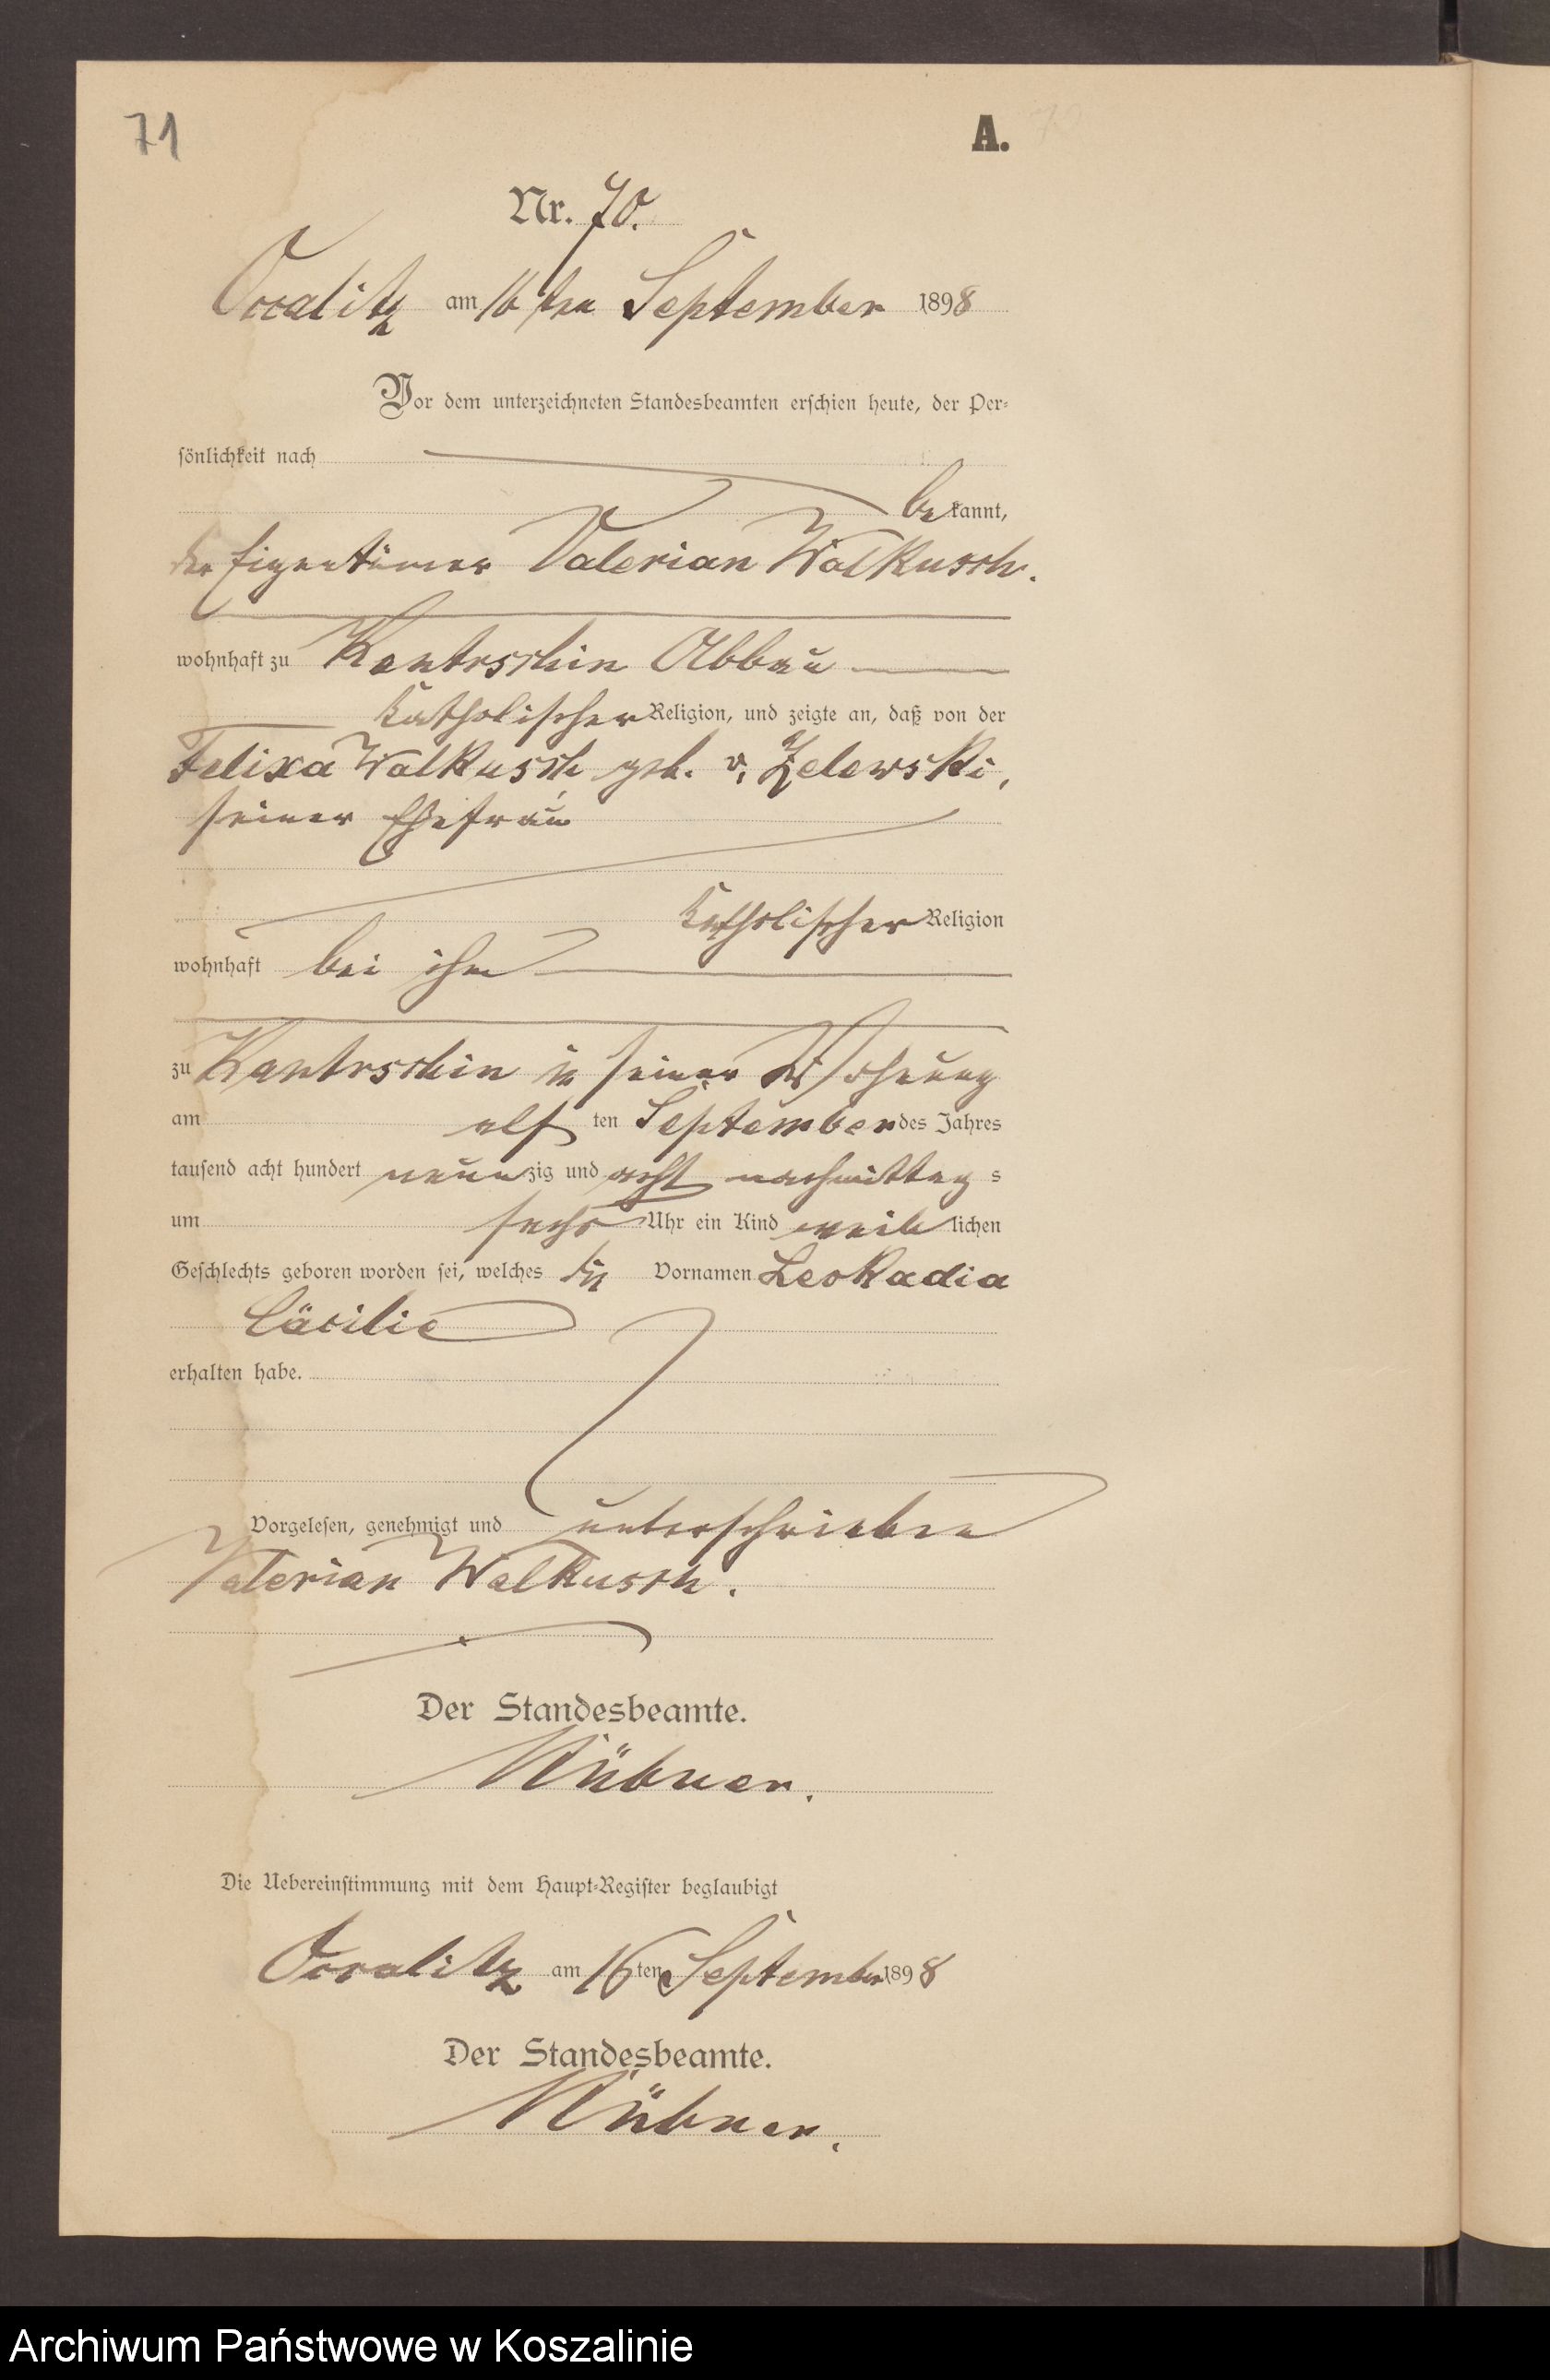 71
A.
Nr. 70.
Occalitz am 16 ten September 1898
Vor dem unterzeichneten Standesbeamten erschien heute, der Per-
sönlichkeit nach
bekannt,
der Eigentümer Valerian Walkusch.
wohnhaft zu Kantrschin Abbau
katholischer Religion, und zeigte an, daß von der
Felixa Walkusch geb. v. Zelewski,
seiner Ehefrau
katholischer Religion
wohnhaft bei ihm
zu Kantrschin in seiner Wohnung
am elf ten September des Jahres
tausend acht hundert neunzig und acht nachmittags
um sechs Uhr ein Kind weiblichen
Geschlechts geboren worden sei, welches die Vornamen Leokadia
Cäcilie
erhalten habe.
Vorgelesen, genehmigt und unterschrieben
Valerian Walkusch.
Der Standesbeamte.
Nübner.
Die Uebereinstimmung mit dem Haupt-Register beglaubigt
Occalitz am 16 ten September 1898
Der Standesbeamte.
Nübner.
Archiwum Państwowe w Koszalinie